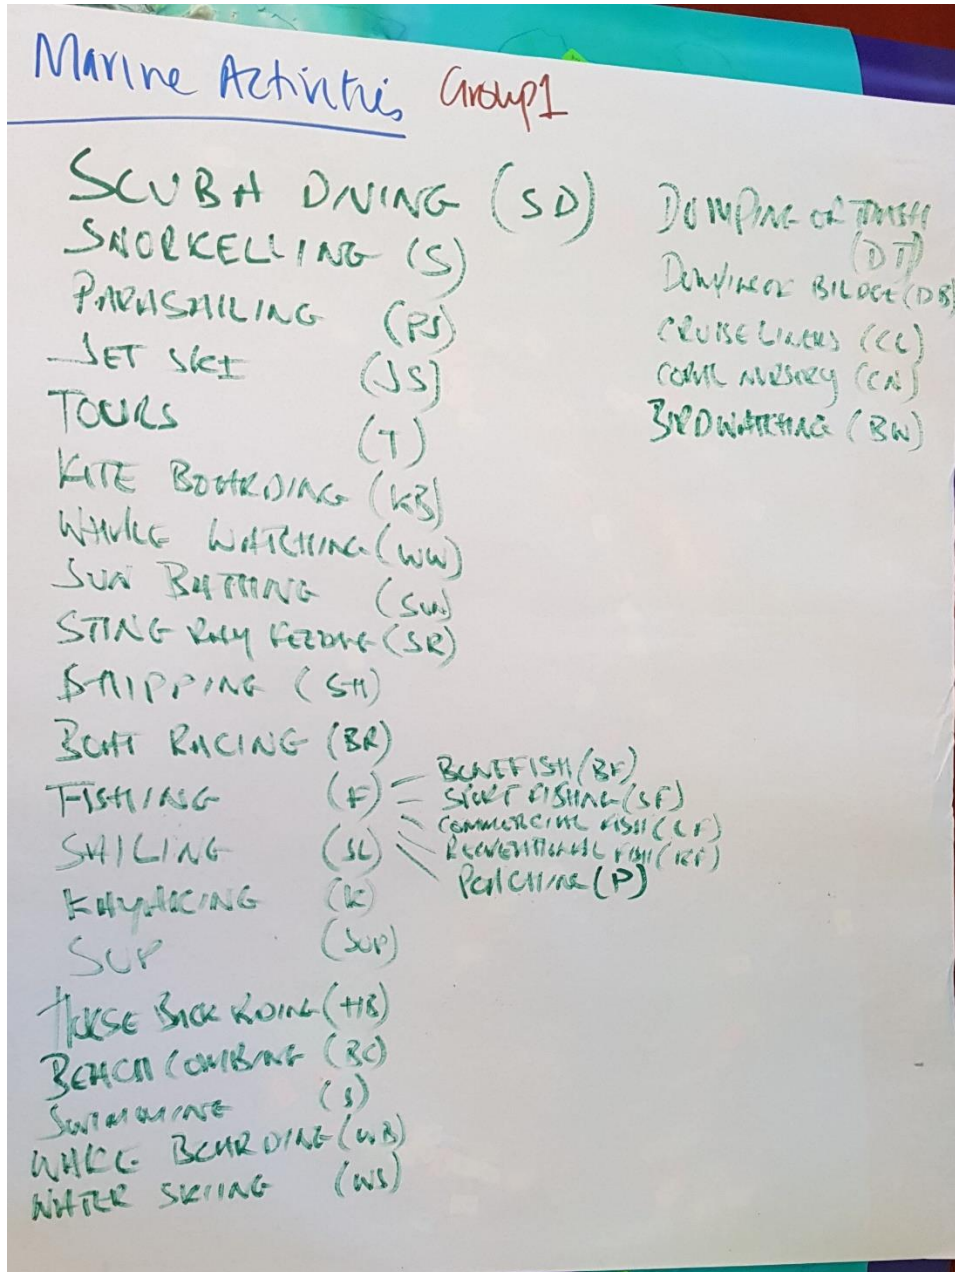 Marine Activities Group 1
SCUBA DIVING (SD)
SNORKELLING (S)
PARASAILING (PS)
JET SKI (JS)
TOURS (T)
KITE BOARDING (KB)
WHALE WATCHING (WW)
SUN BATHING (SUN)
STING RAY FEEDING (SR)
SHIPPING (SH)
BOAT RACING (BR)
FISHING (F)
SAILING (SL)
KAYAKING (K)
SUP (SUP)
HORSE BACK RIDING (HB)
BEACH COMBING (BC)
SWIMMING (S)
WAKE BOARDING (WB)
WATER SKIING (WS)
BONEFISH (BF)
SPORT FISHING (SF)
COMMERCIAL FISH (CF)
RECREATIONAL FISH (RF)
POACHING (P)
DUMPING OF TRASH
(DT)
DUMPING OF BILDGE (DB)
CRUISE LINERS (CL)
CORAL NURSERY (CN)
BIRDWATCHING (BW)